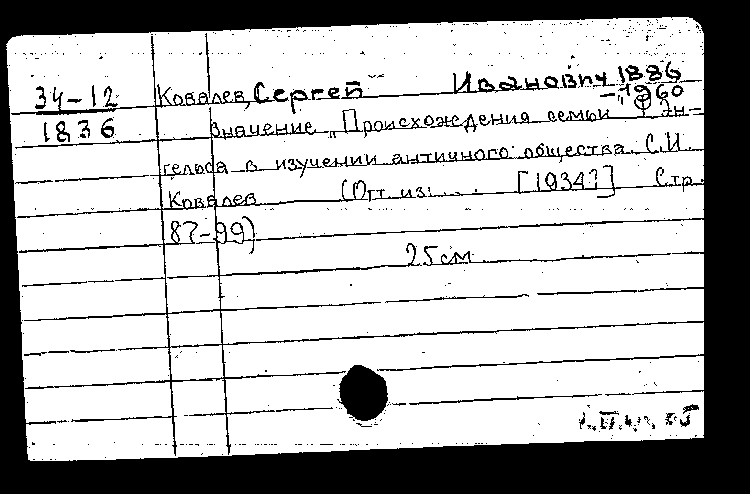 34-12
1836
Ковалев, Сергей Иванович 1886
-1960
Значение „Происхождения семьи" Ф. Эн-
гельса в изучении античного общества. С.И.
Ковалев (Отт. из: ... [1934?] Стр.
87-99)
25 см